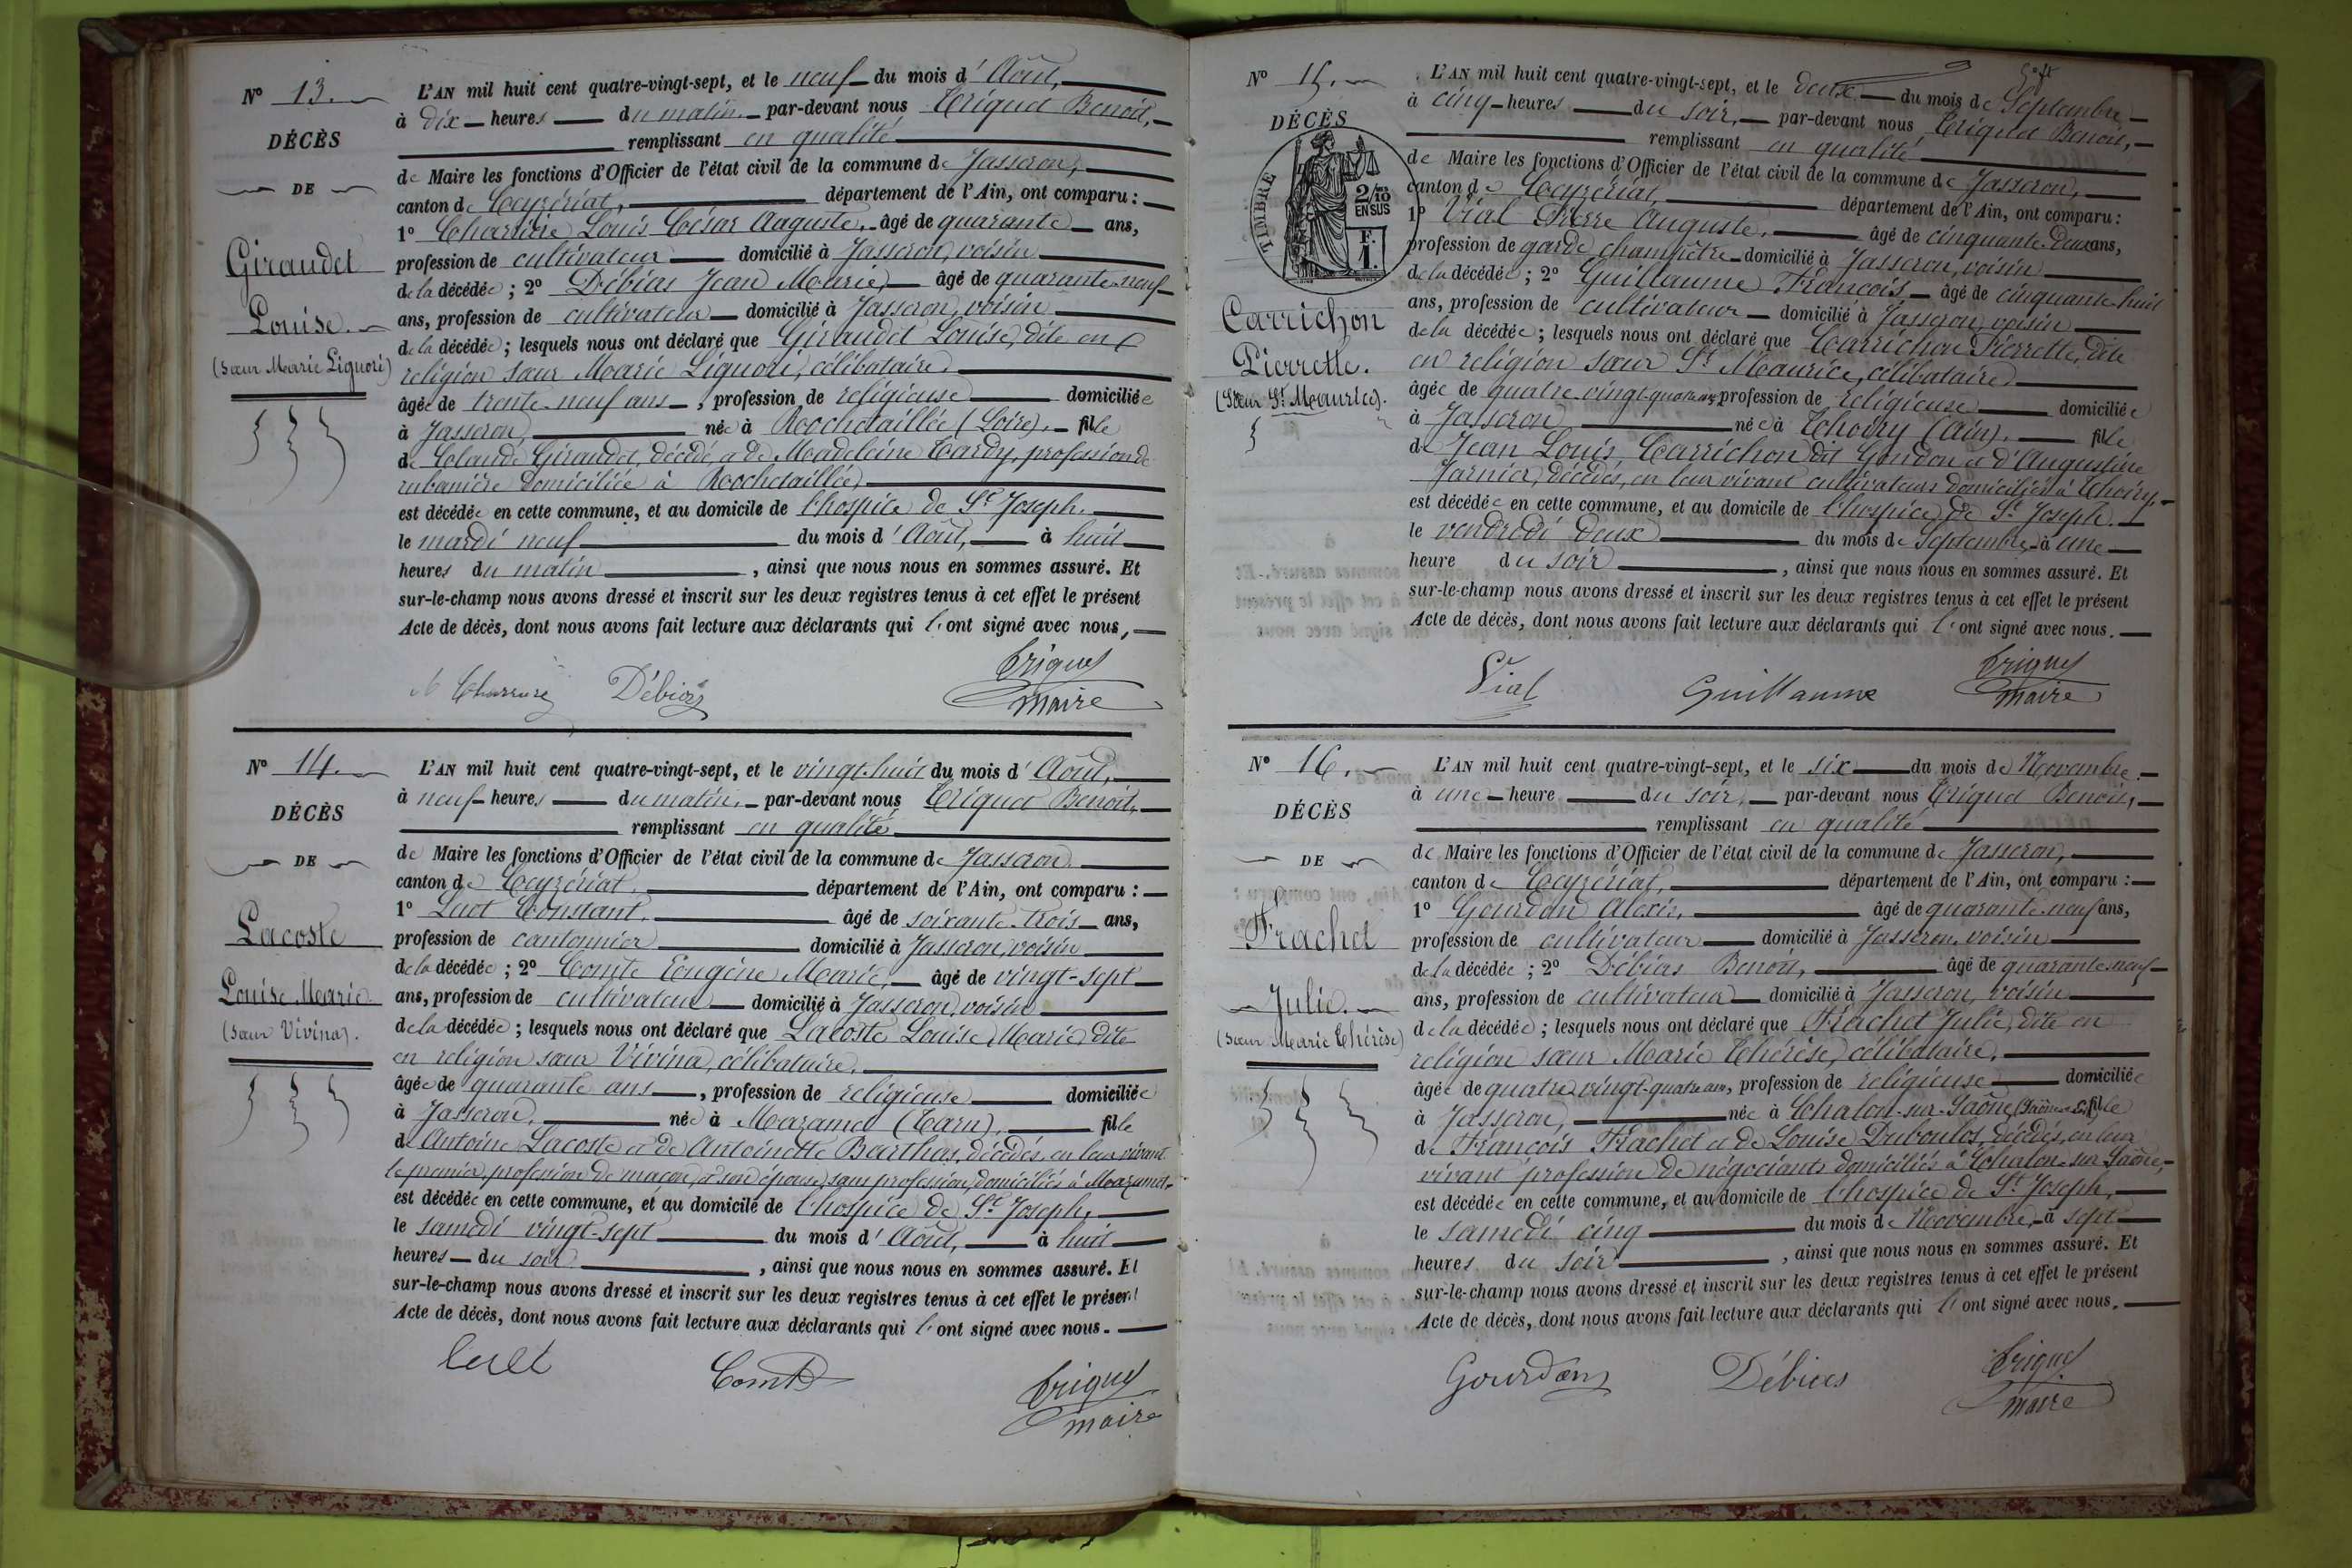 N° 13.
DÉCÈS
DE
Giraudet
Louise.
(Sœur Marie Liguori)
L'AN mil huit cent quatre-vingt-sept, et le neuf du mois d' Août,
à dix heures du matin, par-devant nous Triquet Benoit,
remplissant en qualité
de Maire les fonctions d'Officier de l'état civil de la commune de Jasseron,
canton de Ceyzériat, département de l'Ain, ont comparu :
1° Charrière Louis César Auguste, âgé de quarante ans,
profession de cultivateur domicilié à Jasseron, voisin
de la décédée ; 2° Débias Jean Marie, âgé de quarante-neuf
ans, profession de cultivateur domicilié à Jasseron, voisin
de la décédée ; lesquels nous ont déclaré que Giraudet Louise, dite en
religion sœur Marie Liguori, célibataire,
âgée de trente-neuf ans, profession de religieuse domiciliée
à Jasseron, née à Rochetaillée (Loire), fille
de Claude Giraudet, décédé, et de Madeleine Tardy, profession de
rubanière domiciliée à Rochetaillée
est décédée en cette commune, et au domicile de l'hospice de St Joseph,
le mardi neuf du mois d' Août, à huit
heures du matin, ainsi que nous nous en sommes assuré. Et
sur-le-champ nous avons dressé et inscrit sur les deux registres tenus à cet effet le présent
Acte de décès, dont nous avons fait lecture aux déclarants qui l'ont signé avec nous,
Débias
Triquet
maire
N° 14.
DÉCÈS
DE
Lacoste
Louise Marie
(Sœur Vivina).
L'AN mil huit cent quatre-vingt-sept, et le vingt-huit du mois d' Août,
à neuf heures du matin, par-devant nous Triquet Benoit,
remplissant en qualité
de Maire les fonctions d'Officier de l'état civil de la commune de Jasseron,
canton de Ceyzériat, département de l'Ain, ont comparu :
1° Constant, âgé de soixante-trois ans,
profession de cantonnier domicilié à Jasseron, voisin
de la décédée ; 2° Comte Eugène Marie, âgé de vingt-sept
ans, profession de cultivateur domicilié à Jasseron, voisin
de la décédée ; lesquels nous ont déclaré que Lacoste Louise Marie dite
en religion sœur Vivina, célibataire,
âgée de quarante ans, profession de religieuse domiciliée
à Jasseron, née à Mazamet (Tarn), fille
d' Antoine Lacoste et de Antoinette Barthas, décédés, en leur vivant
le premier, profession de maçon, et son épouse, sans profession, domiciliés à Mazamet,
est décédée en cette commune, et au domicile de l'hospice de St Joseph,
le samedi vingt-sept du mois d' Août, à huit
heures du soir, ainsi que nous nous en sommes assuré. Et
sur-le-champ nous avons dressé et inscrit sur les deux registres tenus à cet effet le présent
Acte de décès, dont nous avons fait lecture aux déclarants qui l'ont signé avec nous.
Comte
Triquet
maire
N° 15.
DÉCÈS
TIMBRE
2/10
EN SUS
F.
1.
Carrichon
Pierrette.
(Sœur St Maurice).
L'AN mil huit cent quatre-vingt-sept, et le deux du mois de Septembre
à cinq heures du soir, par-devant nous Triquet Benoit,
remplissant en qualité
de Maire les fonctions d'Officier de l'état civil de la commune de Jasseron,
canton de Ceyzériat, département de l'Ain, ont comparu :
1° Vial Pierre Auguste, âgé de cinquante-deux ans,
profession de garde champêtre domicilié à Jasseron, voisin
de la décédée ; 2° Guillaume François âgé de cinquante-huit
ans, profession de cultivateur domicilié à Jasseron, voisin
de la décédée ; lesquels nous ont déclaré que Carrichon Pierrette, dite
en religion sœur St Maurice, célibataire
âgée de quatre-vingt-quatre ans profession de religieuse domiciliée
à Jasseron née à Thoiry (Ain), fille
de Jean Louis Carrichon dit Gondon et d'Augustine
Jarnier, décédés, en leur vivant cultivateurs domiciliés à Thoiry,
est décédée en cette commune, et au domicile de l'hospice de St Joseph.
le vendredi deux du mois de Septembre, à une
heure du soir, ainsi que nous nous en sommes assuré. Et
sur-le-champ nous avons dressé et inscrit sur les deux registres tenus à cet effet le présent
Acte de décès, dont nous avons fait lecture aux déclarants qui l'ont signé avec nous.
Vial
Guillaume
Triquet
maire
N° 16.
DÉCÈS
DE
Frachet
Julie.
(Sœur Marie Thérèse)
L'AN mil huit cent quatre-vingt-sept, et le six du mois de Novembre.
à une heure du soir, par-devant nous Triquet Benoit,
remplissant en qualité
de Maire les fonctions d'Officier de l'état civil de la commune de Jasseron,
canton de Ceyzériat, département de l'Ain, ont comparu :
1° Gourdan Alexis, âgé de quarante-neuf ans,
profession de cultivateur domicilié à Jasseron, voisin
de la décédée ; 2° Débias Benoit, âgé de quarante-neuf
ans, profession de cultivateur domicilié à Jasseron, voisin
de la décédée ; lesquels nous ont déclaré que Frachet Julie, dite en
religion sœur Marie Thérèse, célibataire,
âgée de quatre-vingt-quatre ans, profession de religieuse domiciliée
à Jasseron, née à Chalon-sur-Saône fille
de François Frachet et de Louise Duboulos, décédés, en leur
vivant profession de négociants domiciliés à Chalon-sur-Saône,
est décédée en cette commune, et au domicile de l'hospice de St Joseph,
le samedi cinq du mois de Novembre, à sept
heures du soir, ainsi que nous nous en sommes assuré. Et
sur-le-champ nous avons dressé et inscrit sur les deux registres tenus à cet effet le présent
Acte de décès, dont nous avons fait lecture aux déclarants qui l'ont signé avec nous.
Gourdan
Débias
Triquet
maire